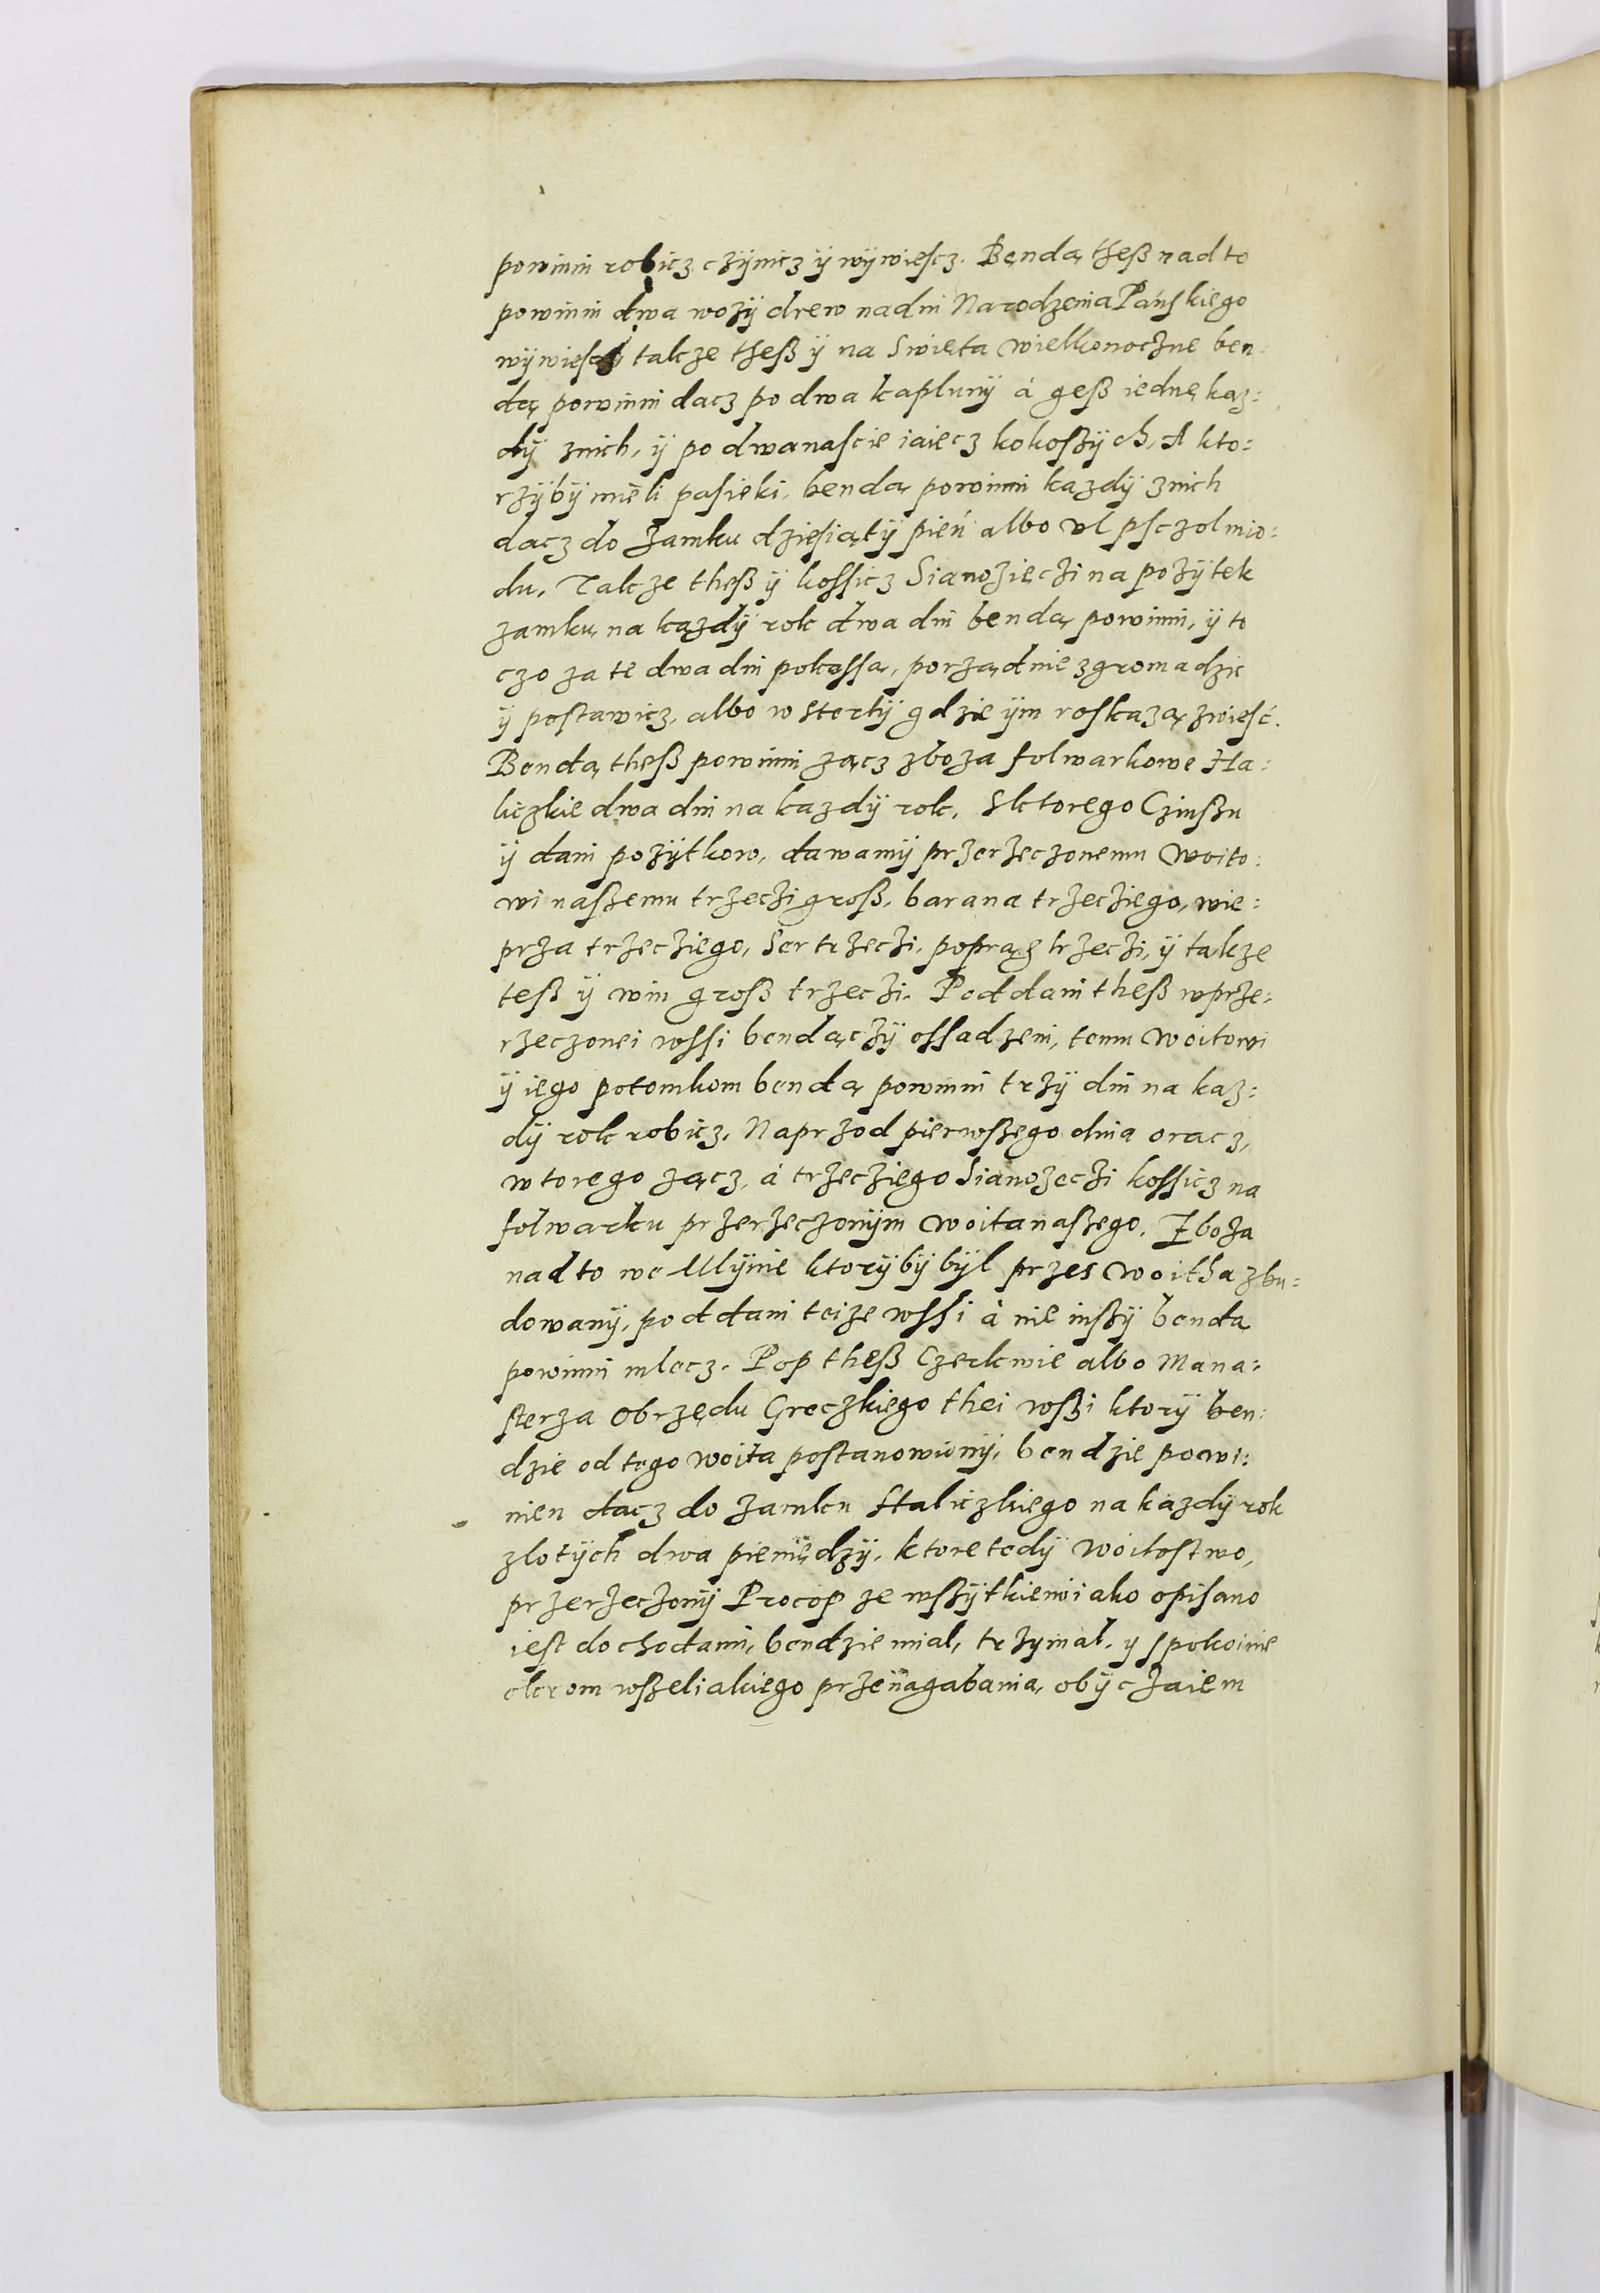 powinni robicz czÿnicz ÿ wÿwiescz. Bęnda theß nad to
powinni dwa wozÿ drew nadni Narodzenia Pańskiego
wÿwiescz takze theß ÿ na Swięta wielkonoczne ben=
dą powinni dacz po dwa kaplunÿ á gęß iednę kaz=
dÿ znich, ÿ po dwanascie iaiecz kokoszÿch, A kto=
rzÿbÿ mieli pasieki, benda powinni kazdÿ znich
dacz do Zamku dziesiątÿ pień albo vl psczol mio=
du. Takze theß ÿ kossicz Sianozięczi na pozÿtek
zamku, na kazdÿ rok dwa dni benda powinni, ÿ to
czo za te dwa dni pokossą, porządnie zgromadzic
ÿ postawicz, albo w stertÿ gdzie ÿm roskazą zwiesć.
Benda theß powinni zącz zboza folwarkowe Ha=
liczkie dwa dni na kazdÿ rok. Sktorego Czinszu
ÿ dani pozÿtkow, dawamÿ przerzeczonemu woito=
wi naszemu trzeczi groß, barana trzecziego, wie=
prza trzecziego, Ser trzeczi, popręg trzeczi, ÿ takze
teß ÿ win groß trzeczi. Poddani theß wprze=
rzeczonei wssi bendączÿ ossadzeni, temu woitowi
ÿ iego potomkom bendą powinni trzÿ dni na kaz=
dÿ rok robicz. Naprzod pierwszego dnia oracz,
wtorego zącz, á trzecziego Sianozeczi kossicz na
folwarku przerzeczonÿm woita naszego. Zboza
nad to we Mlÿnie ktorÿbÿ bÿl przes woitha zbu=
dowanÿ, poddani teize wssi á nie inszÿ benda
powinni mlecz. Pop theß Czerkwie albo Mana=
sterza Obrzędu Greczkiego thei wszi ktorÿ ben=
dzie od tego woita postanowionÿ, bendzie powi=
nien dacz do zamku Haliczkiego na kazdÿ rok
zlotÿch dwa pieniędzÿ, ktore tedÿ woitostwo,
przerzeczonÿ Procop ze wszÿtkiemi iako opisano
iest dochodami, bendzie mial, trzÿmal, y spokoinie
okrom wszeliakiego przenagabania, obÿczaiem